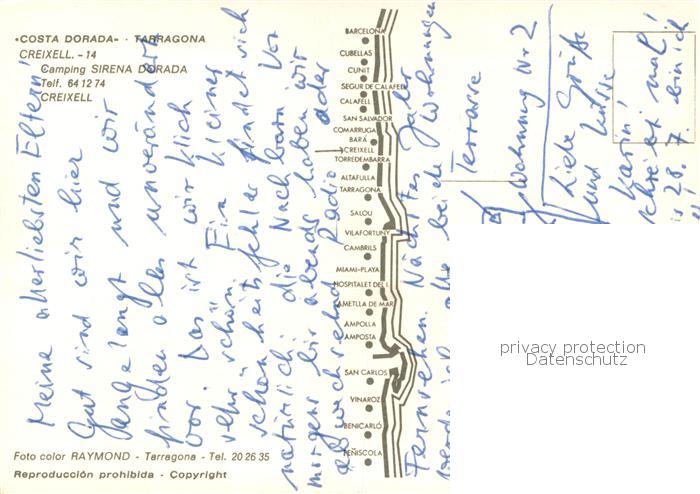 «COSTA DORADA» · TARRAGONA
CREIXELL. - 14
Camping SIRENA DORADA
Telf. 64 12 74
CREIXELL
Meine allerliebsten Eltern!
Gut sind wir hier
angelangt und wir
finden alles unverändert
vor. Das ist wirklich
sehr schön. Ein kleiner
Schönheitsfehler findet sich
natürlich: die Nachbarn. Von
morgens bis abends haben wir
abwechselnd Radio oder
Fernsehen. Nächstes Jahr
beide Wohnungen
Terrasse
Wohnung Nr 2
Liebe Grüße
und Küsse
Karin!
schreibt mal!
28. 7 bin ich
BARCELONA
CUBELLAS
CUNIT
SEGUR DE CALAFELL
CALAFELL
SAN SALVADOR
COMARRUGA
BARÁ
CREIXELL
TORREDEMBARRA
ALTAFULLA
TARRAGONA
SALOU
VILAFORTUNY
CAMBRILS
MIAMI-PLAYA
HOSPITALET DEL I.
AMETLLA DE MAR
AMPOLLA
AMPOSTA
SAN CARLOS
VINAROZ
BENICARLÓ
PEÑISCOLA
privacy protection
Datenschutz
Foto color RAYMOND - Tarragona - Tel. 20 26 35
Reproducción prohibida - Copyright